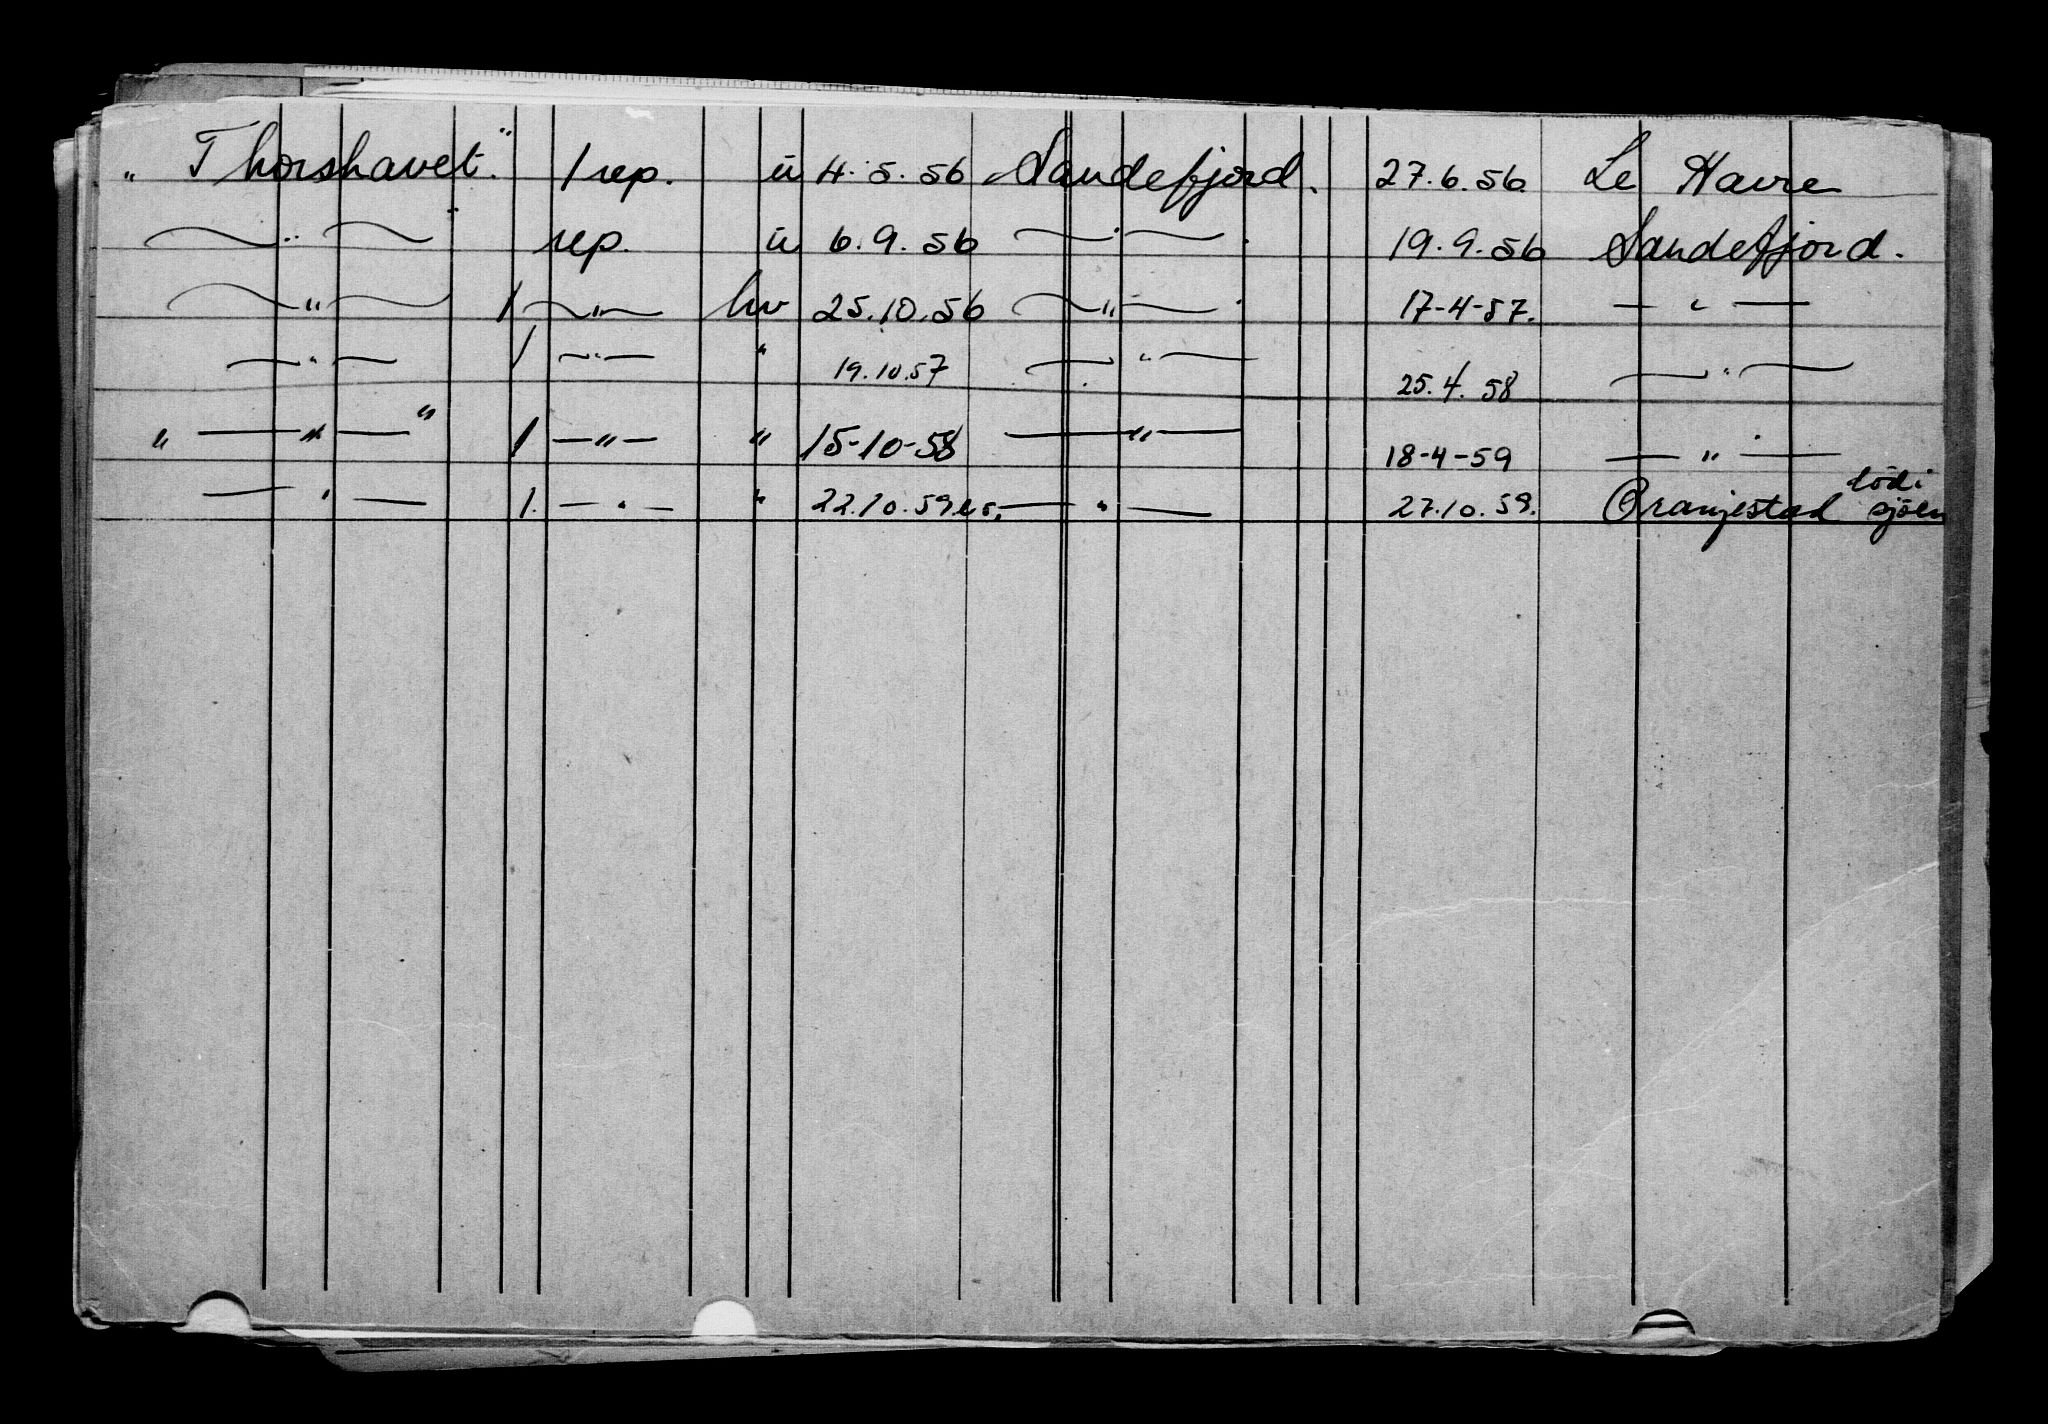 „ Thorshavet." 1 rep. u 4.5.56 Sandefjord. 27.6.56 Le Havre
— " — " rep. u 6.9.56 — " — . 19.9.56 Sandefjord.
— " — 1 — " — hv 25.10.56 — " — . 17-4-57. — " —
— " — 1 — " — " 19.10.57 — " — 25.4.58 — " —
" — " — " 1 — " — " 15-10-58 — " — 18-4-59 — " —
— " — 1. — " — " 22.10.59 — " — 27.10.59. Oranjestad död i sjöen